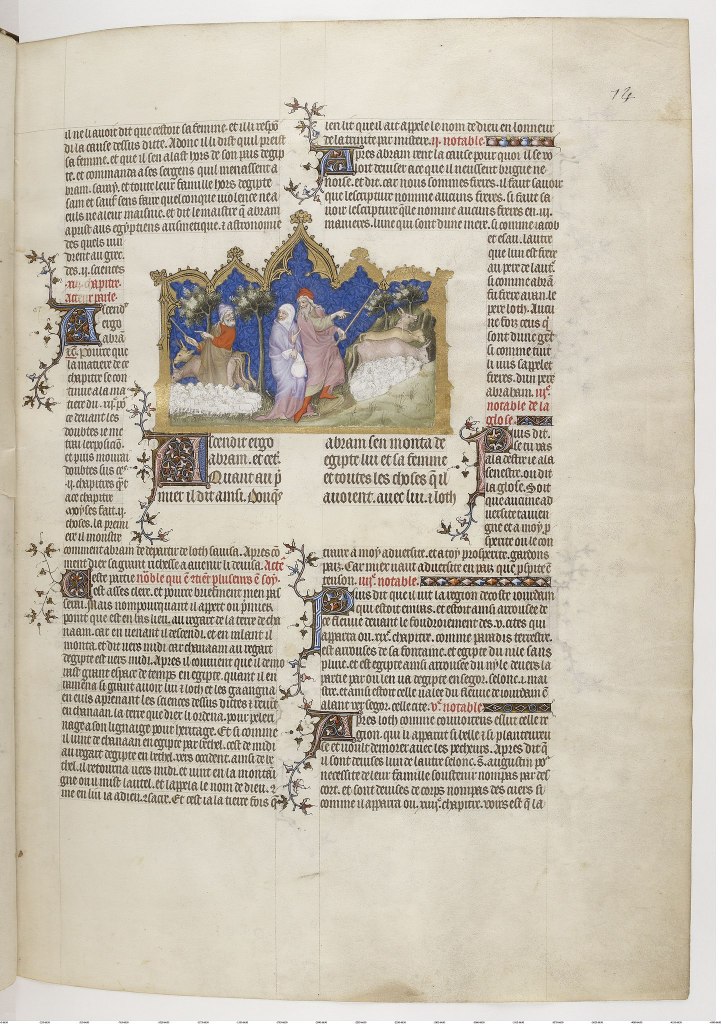 14
il ne li avoit dit que cestoit sa femme. et il li respo
di la cause dessus ditte. Adonc il li dist quil preist
sa femme. et que il sen alast hors de son pais degip
te. et commanda a ses sergens quil menassent a
bram. saray. et toute leur famille hors degipte
sain et sauf sens faire quelconque violence ne a
euls ne a leur maisnie. et dit le maistre q abram
aprist aus egyptiens arismetique. 7 astronomie
des quels vin
drent au grec
des .ii. sciences
.xii. chapitre.
Acteur parle.
Ascend
ergo
abra
Pource que
la matiere de ce
chapitre se con
tinue a la ma
tiere du
ce devant les
doubtes ie me
tray lexposicion.
et puis mouvrai
doubtes sus ce
.ii. chapitres
ace chapitre
moyses fait .ii.
choses. la premi
er il monstre
comment abram se departi de loth Apres co
ment dieu sa grant richesse a avenir li devisa. Acte
este partie noble qui est tiers plusieurs e soy.
est asses clere. et pource briefment men pas
serai. Mais nompourquant il appert ou premier
point que est en bas lieu. au regart de la terre de cha
naam. car en venant il descendi. et en ralant il
monta. et dit vers midi. car chanaam au regart
degipte est vers midi. Apres il convient que il demo
rast grant espace de temps en egipte. quant il en
ramena si grant avoir lui 7 loth et les gaangna
en euls aprenant les sciences dessus dictes 7 revit
en chanaan. la terre que dieu li ordena. pour peleri
nage a son lignaige pour heritage. Et si comme
il vint de chanaan en egipte par bethel. cest de midi
au regart degipte en bethel. vers occident. ainsi de be
thel. il retourna vers midi. et vint en la montai
gne ou il mist lautel. et lappela le nom de dieu. 7
me en lui ia a dieu. 7 sacre. Et cest ia la tierce fois q
Ascendit ergo
abram. et cet.
Quant au p
mier il dit ainsi. Donqs
abram sen monta de
egipte lui et sa femme
et toutes les choses q il
avoient. avec lui. 7 loth
ien lit que il ait appele le nom de dieu en lonneur
de la trinite par mistere. .ii. notable.
Apres abram rent la cause pour quoi il se vo
loit deviser. a ce que il neussent brigue ne
noise. et dit. car nous sommes freres. il faut savoir
que lescripture nomme aucuns freres. si faut sa
voir lescripture qelle nomme aucuns freres en .iiii.
manieres. lune qui sont dune mere. si comme iacob
et esau. lautre
que lun est frere
au pere de lautre
si comme abram
fu frere aran. le
pere loth. Aucu
ne fois ceus q
sont dune gent
si comme tuit
li iuis sapelent
freres. dun pere
abraham. .iii.
notable de la
glose.
Puis dit.
se tu vas
a la destre ie a la
senestre. ou dit
la glose. Soit
que aucune ad
versite taviengne
gne et a moy p
sperite ou le con
traire a moy adversite. et a toy prosperite. gardons
paix. Car miex vaut adversite en paix que prosperite en
tenson. .iiii. notable.
Puis dit que il vit la region decoste iourdain
qui estoit entor. et estoit ainsi arrousee de
ce fleuve devant le foudroiement des .v. cites qui
apparra ou .xix. chapitre. comme paradis terrestre.
est arrouses de la fontaine. et egipte du nile sans
pluie. et est egipte ainsi arrousee du nyle devers la
partie par ou len va degipte en segor. selonc .i. mai
stre. et ainsi estoit celle valee du fleuve de iourdain en
alant vers segor. celle cite. .v. notable.
Apres loth comme convoiteus eslut celle re
gion. qui li apparut si belle 7 si planteureu
se et voult demorer avec les pecheurs. Apres dit q
il sont devises lun de lautre selonc .s. augustin por
necessite de leur famille soustenir nompas par des
cort. et sont devises de corps nompas des cuers si
comme il apparra ou .xiiii. chapitre. voirs est q la